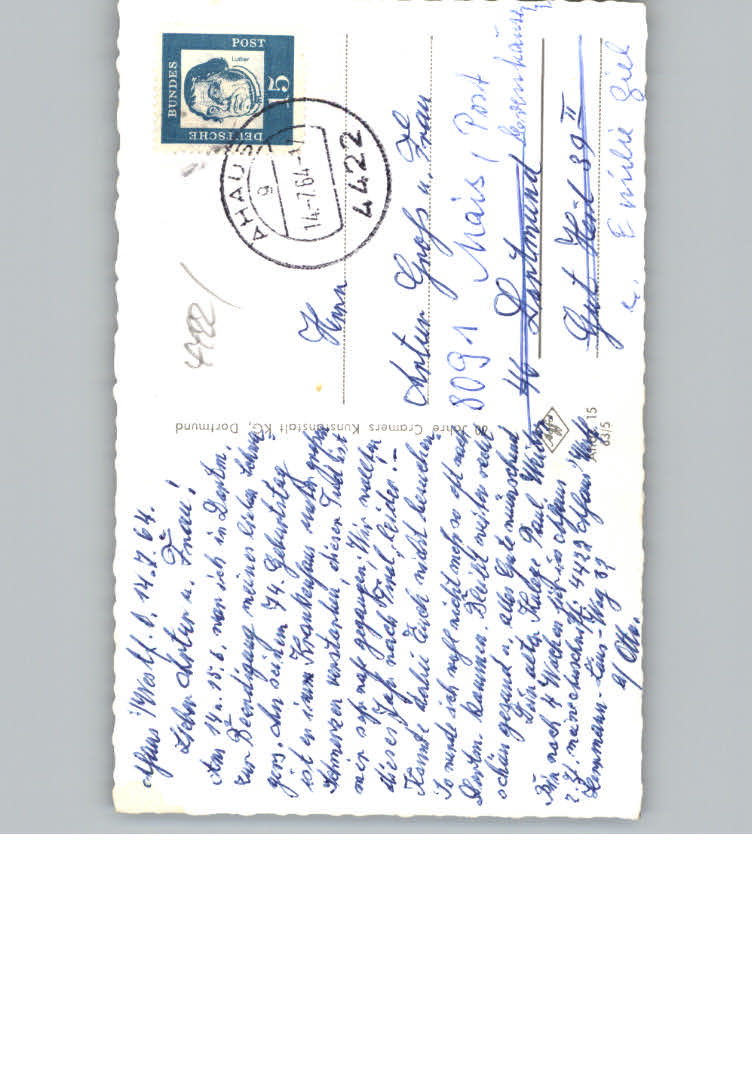 Ahaus i/Westf. d. 14.7.64.
Lieber Artur u. Frau!
Am 14. u. 15.6. war ich in Dortm.
zur Beerdigung meines lieben
gers. An seinem 74. Geburtstag
ist er im Krankenhaus unter großen
Schmerzen verstorben, dieser Tod ist
mir sehr nah gegangen. Wir wollten
dieses Jahr nach Tirol, leider! –
Konnte derbei Euch nicht besuchen
So werde ich wohl nicht mehr so oft nach
Dortm. kommen. Bleibt weiter recht
schön gesund u. alles Gute wünschend
Dein alter Kollege Paul
Bin noch 4 Wochen hier in Ahaus
z. Zt. meine Anschrift: 4422 Ahaus Westf.
Hermann-Löns-Weg 37
b/ Otto.
DEUTSCHE BUNDES POST
15
Luther
AHAUS
g
14.-7.64.-17
4422
4422/
Herrn
Artur Groß u. Frau
8091 Mais / Post
46 Dortmund
Gut Heil 39 II
b. Emilie Ziel
Jahre Cramers Kunstanstalt KG, Dortmund
Agfa
15
63/5